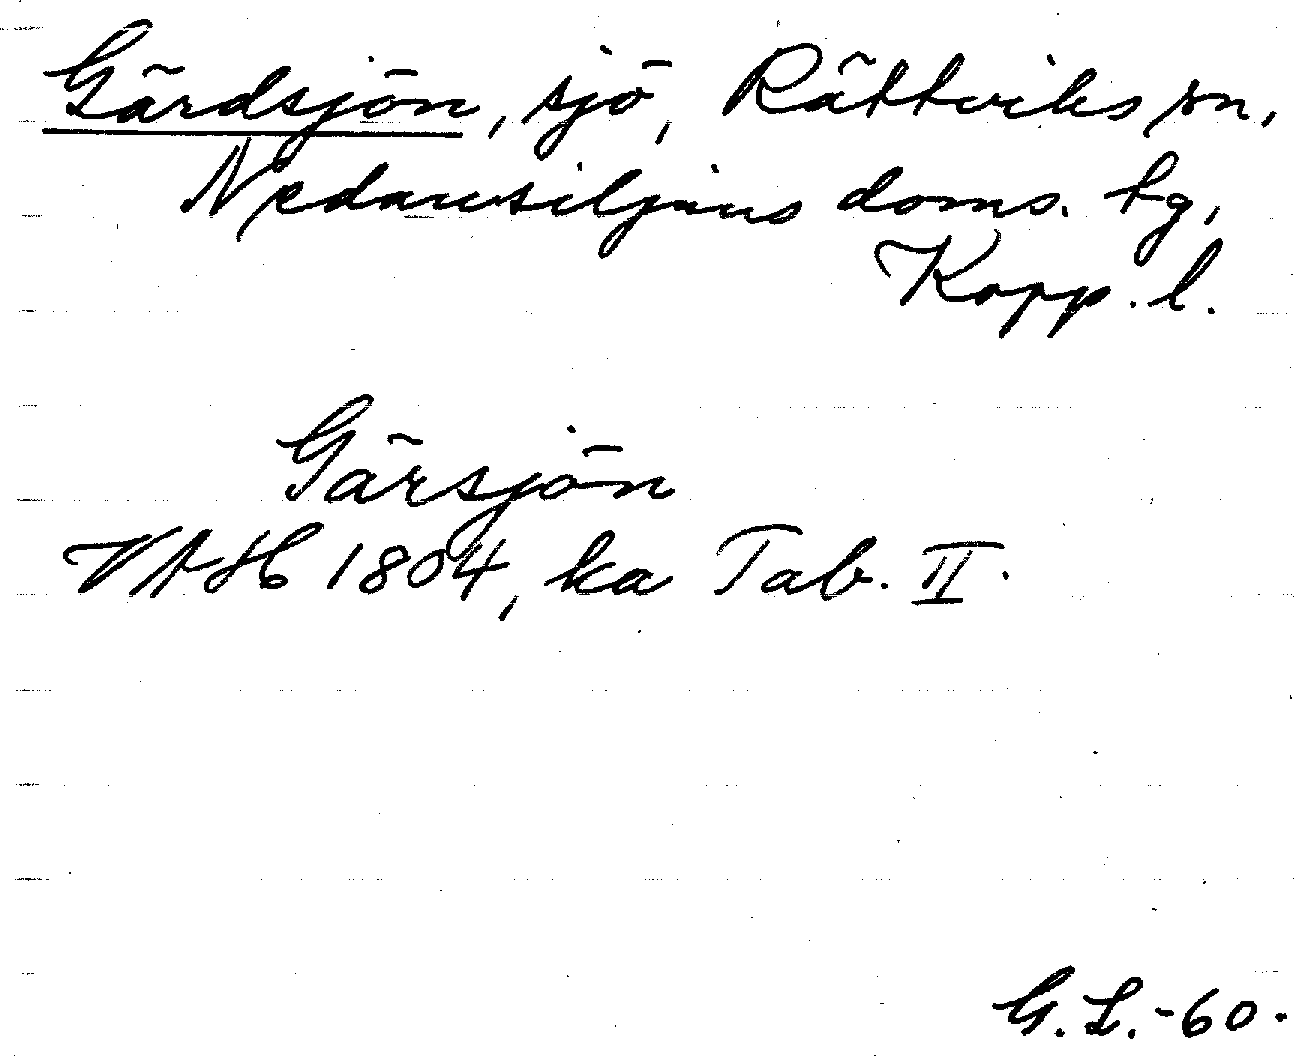 Gärdsjön, sjö, Rättviks sn,
Nedansiljans doms. tg,
Kopp. l.
Gärsjön
VAH 1804, ka Tab. II.
G. L. -60.